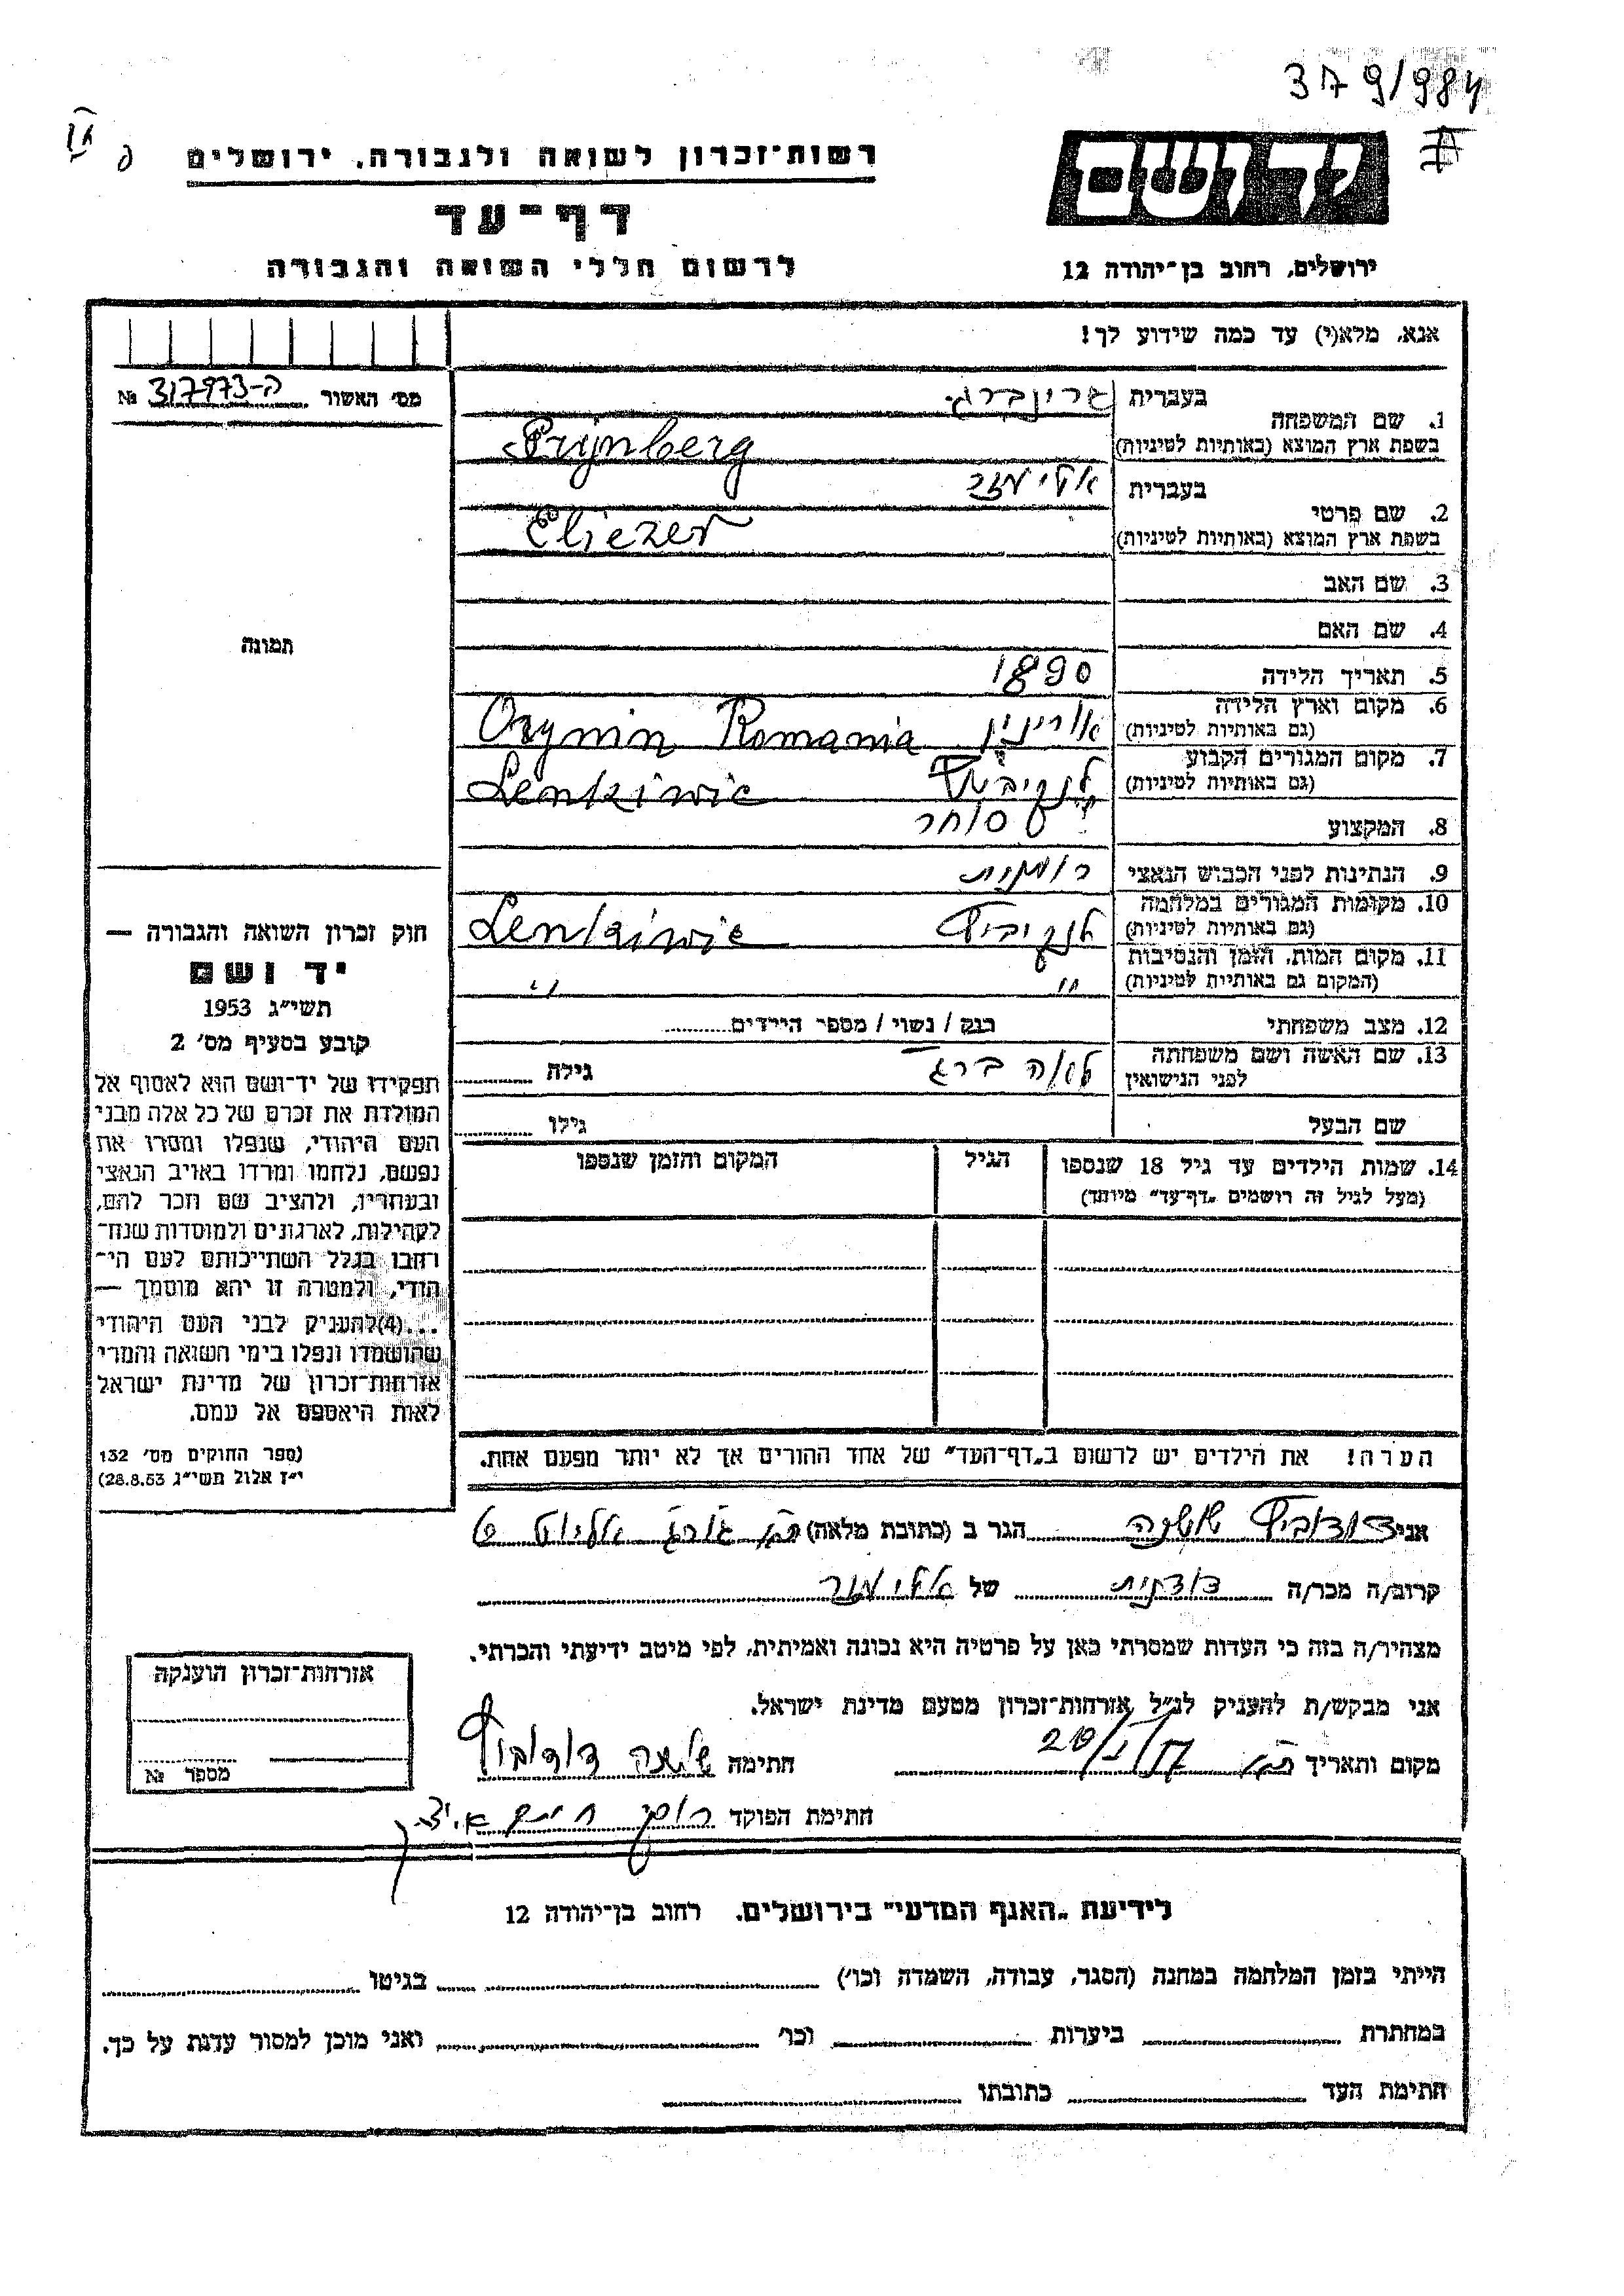 379/984
רשות־זכרון לשואה ולגבורה. ירושלים
דף־עד
לרשום חללי השואה והגבורה
יד ושם
ירושלים, רחוב בן־יהודה 12
אנא, מלא(י) עד כמה שידוע לך!
מס' האשור ה-317973 №
תמונה
1. שם המשפחה
בעברית גרינברג
בשפת ארץ המוצא (באותיות לטיניות) Prijnberg
2. שם פרטי
בעברית אליעזר
בשפת ארץ המוצא (באותיות לטיניות) Eliezer
3. שם האב
4. שם האם
5. תאריך הלידה 1890
6. מקום וארץ הלידה
(גם באותיות לטיניות) אורינין Orynin Romania
7. מקום המגורים הקבוע
(גם באותיות לטיניות) Lenkiwic
8. המקצוע סוחר
9. הנתינות לפני הכבוש הנאצי רומנית
10. מקומות המגורים במלחמה
(גם באותיות לטיניות) לנקיביץ Lenkiwic
11. מקום המות, הזמן והנסיבות
(המקום גם באותיות לטיניות) " "
12. מצב משפחתי רנק / נשוי / מספר הילדים
13. שם האשה ושם משפחתה
לפני הנישואין לאה ברג גילה
שם הבעל גילו
14. שמות הילדים עד גיל 18 שנספו הגיל המקום והזמן שנספו
(מעל לגיל זה רושמים „דף־עד" מיוחד)
הערה! את הילדים יש לרשום ב„דף־העד" של אחד ההורים אך לא יותר מפעם אחת.
חוק זכרון השואה והגבורה —
יד ושם
תשי"ג 1953
קובע בסעיף מס' 2
תפקידו של יד־ושם הוא לאסוף אל
המולדת את זכרם של כל אלה מבני
העם היהודי, שנפלו ומסרו את
נפשם, נלחמו ומרדו באויב הנאצי
ובעוזריו, ולהציב שם וזכר להם,
לקהילות, לארגונים ולמוסדות שנח־
רבו בגלל השתייכותם לעם הי־
הודי, ולמטרה זו יהא מוסמך —
...(4)להעניק לבני העם היהודי
שהושמדו ונפלו בימי השואה והמרי
אזרחות־זכרון של מדינת ישראל
לאות היאספם אל עמם.
(ספר החוקים מס' 132
י"ז אלול תשי"ג 28.8.53)
אני דודוביץ שושנה הגר ב (כתובת מלאה) ג'ורג' אליוט 6
קרוב/ה מכר/ה בודדנית של אליעזר
מצהיר/ה בזה כי העדות שמסרתי כאן על פרטיה היא נכונה ואמיתית, לפי מיטב ידיעתי והכרתי.
אני מבקש/ת להעניק לנ"ל אזרחות־זכרון מטעם מדינת ישראל.
מקום ותאריך חתימה שושנה דודוביץ
חתימת הפוקד
אזרחות־זכרון הוענקה
מספר №
לידיעת „האגף המדעי" בירושלים. רחוב בן־יהודה 12
הייתי בזמן המלחמה במחנה (הסגר, עבודה, השמדה וכו') בגיטו
במחתרת ביערות וכו' ואני מוכן למסור עדות על כך.
חתימת העד כתובתו